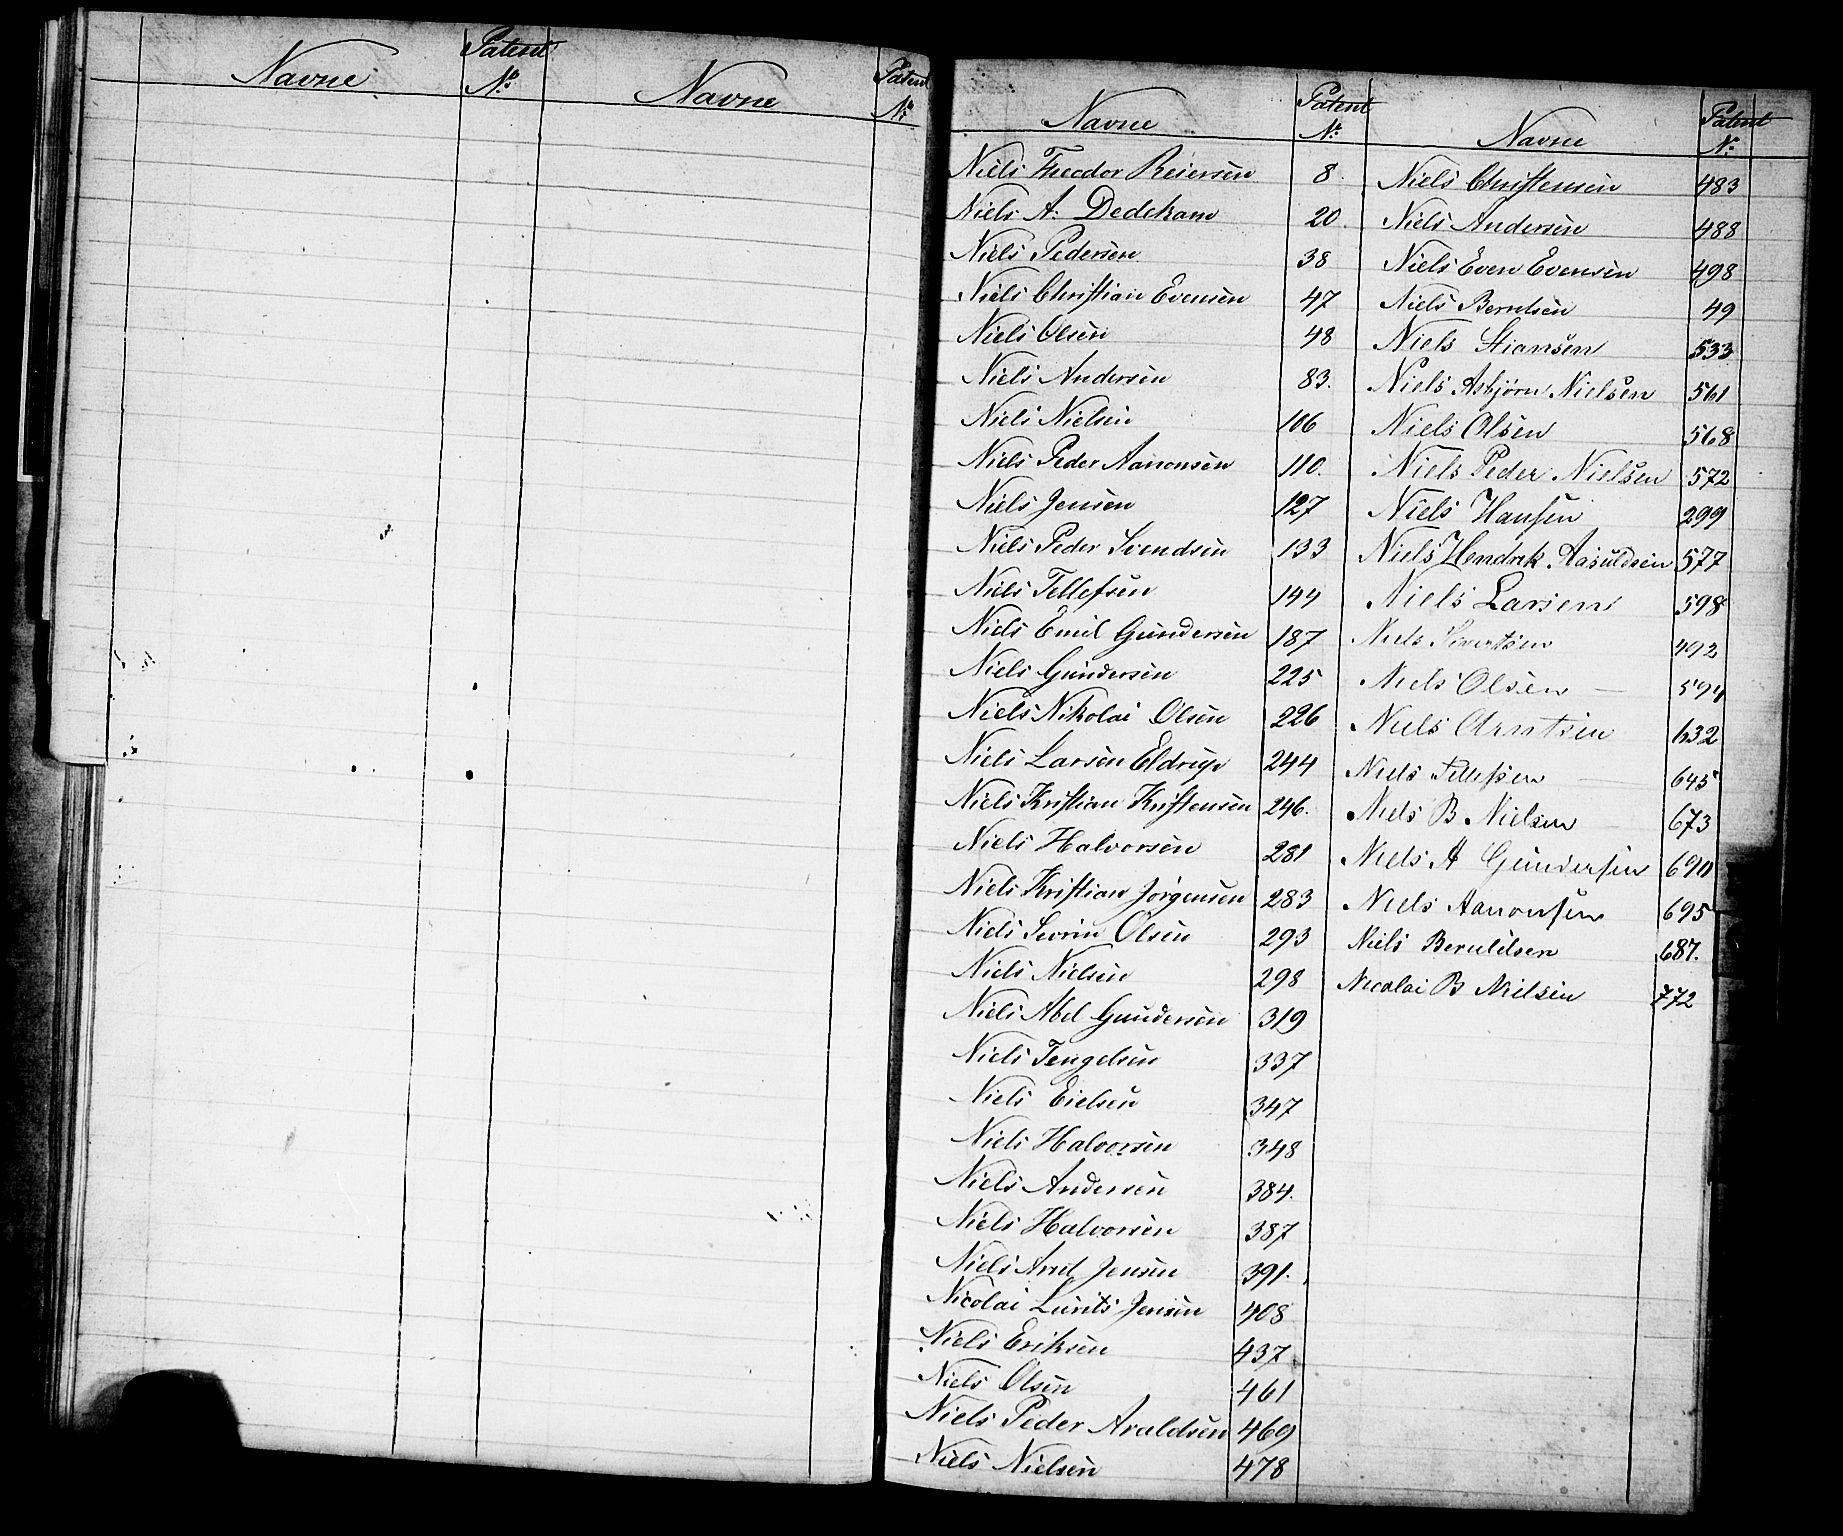 Navne Patent Nº Navne Patent Nº
Navne Patent Nº
Niels Theodor Reiersen 8
Niels A. Dedekam 20
Niels Pedersen 38
Niels Christian Evensen 47
Niels Olsen 48
Niels Andersen 83.
Niels Nielsen 106
Niels Peder Aanonsen 110.
Niels Jensen 127
Niels Peder Svendsen 133
Niels Tellefsen 144
Niels Emil Gundersen 187
Niels Gundersen 225
Niels Nikolai Olsen 226
Niels Larsen Eldrup 244
Niels Kristian Kristensen 246.
Niels Halvorsen 281
Niels Kristian Jörgensen 283
Niels Sevrin Olsen 293
Niels Nielsen 298
Niels Abel Gundersen 319
Niels Tengelsen 337
Niels Eielsen 347
Niels Halvorsen 348
Niels Andersen 384.
Niels Halvorsen 387
Niels Arnt Jensen 391.
Nicolai Lurits Jensen 408
Niels Eriksen 437
Niels Olsen 461
Niels Peder Avaldsen 469
Niels Nielsen 478
Navne Patent Nº
Niels Christensen 483
Niels Andersen 488
Niels Even Evensen 498
Niels Berntsen 49
Niels Stiansen 533
Niels Asbjørn Nielsen 561
Niels Olsen 568
Niels Peder Nielsen 572
Niels Hansen 299
Niels Hendrik Aasuldsen 577
Niels Larsen 598
Niels Sivertsen 492
Niels Olsen — 594
Niels Arntsen 632
Niels Tellefsen — 645
Niels B Nielsen — 673
Niels A Gundersen 690
Niels Aanonsen 695
Niels 687.
Nicolai B Nielsen 772